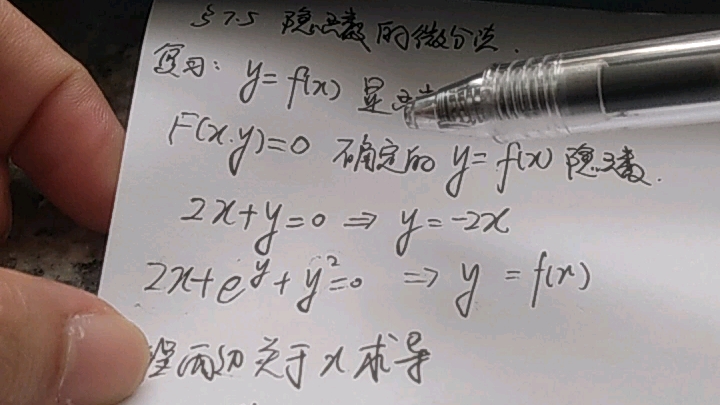 §7.5 隐函数的微分法.
复习: y=f(x) 显函
F(x.y)=0 确定的 y=f(x) 隐函数.
2x+y=0 ⇒ y=-2x
2x+e^y+y^2=0 ⇒ y =f(x)
程两边关于x求导